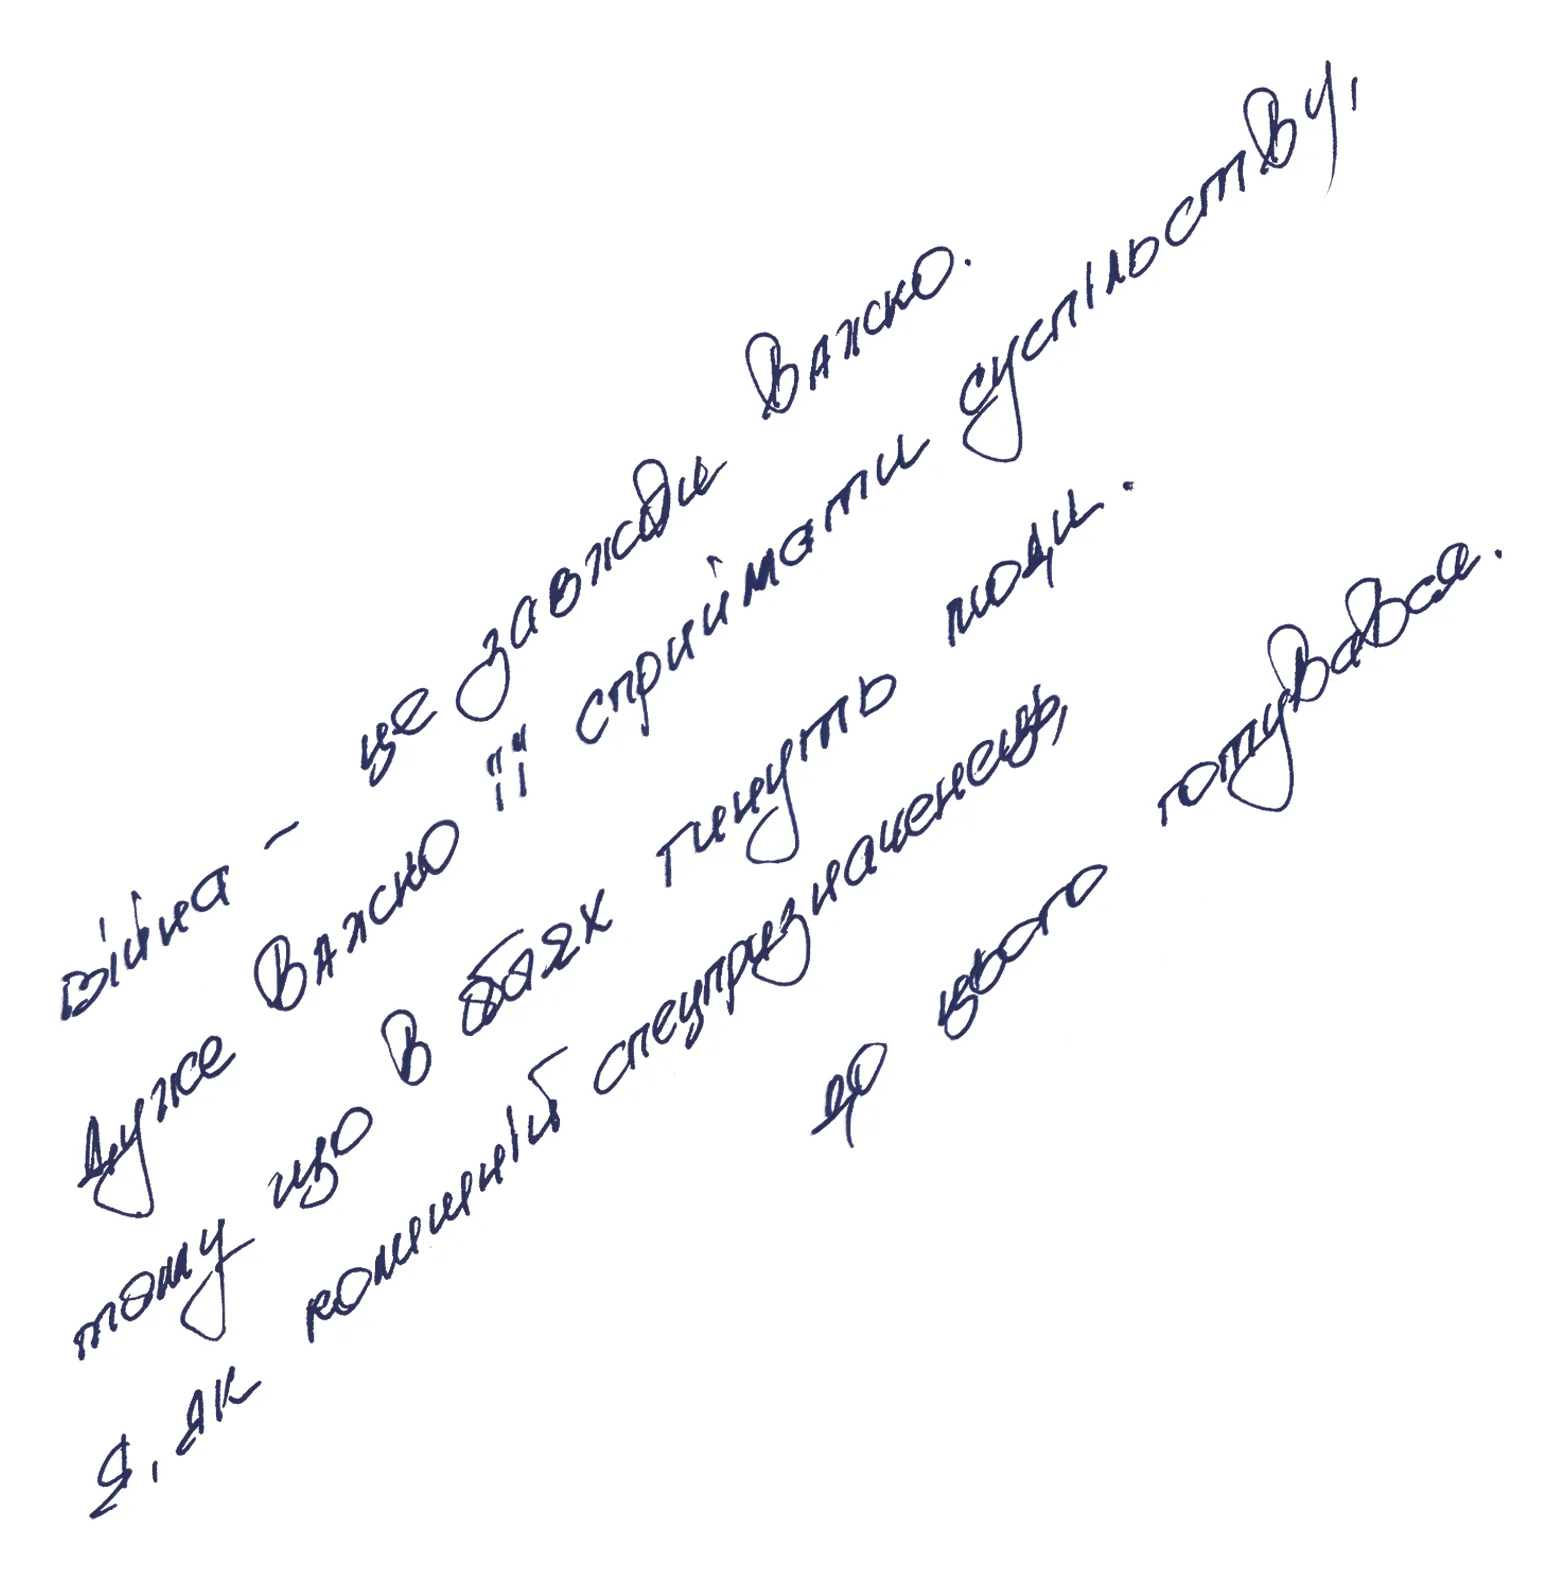 Війна - це завжди важко.
Дуже важко її сприймати суспільству,
тому що в боях гинуть люди.
Я, як колишній спецпризначенець,
до цього готувався.